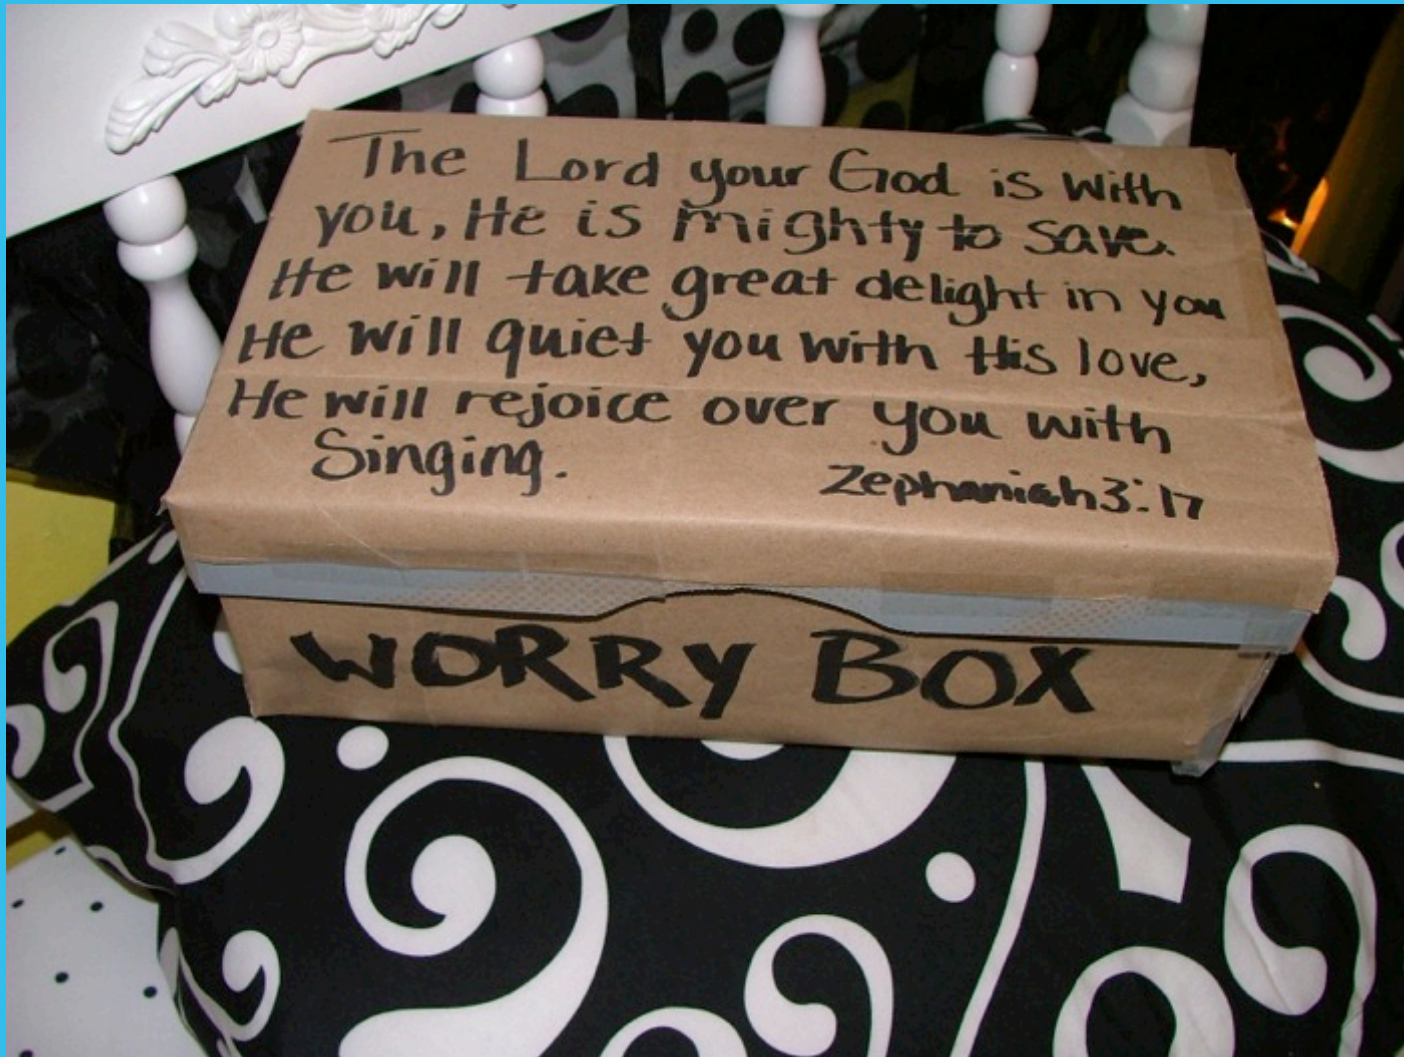 The Lord your God is with
you, He is mighty to save.
He will take great delight in you
He will quiet you with His love,
He will rejoice over you with
Singing.
Zephaniah 3:17
WORRY BOX